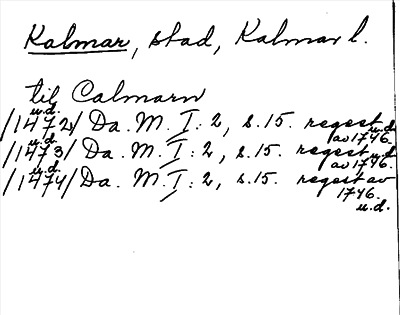 Kalmar, stad, Kalmar l.
til Calmarn
u.d.
/1472/ Da. M. I: 2, s. 15. regest u.d.
av 1746.
u.d.
/1473/ Da. M. I: 2, s. 15. regest u.d.
av 1746.
u.d.
/1474/ Da. M. I: 2, s. 15. regest av
1746.
u.d.